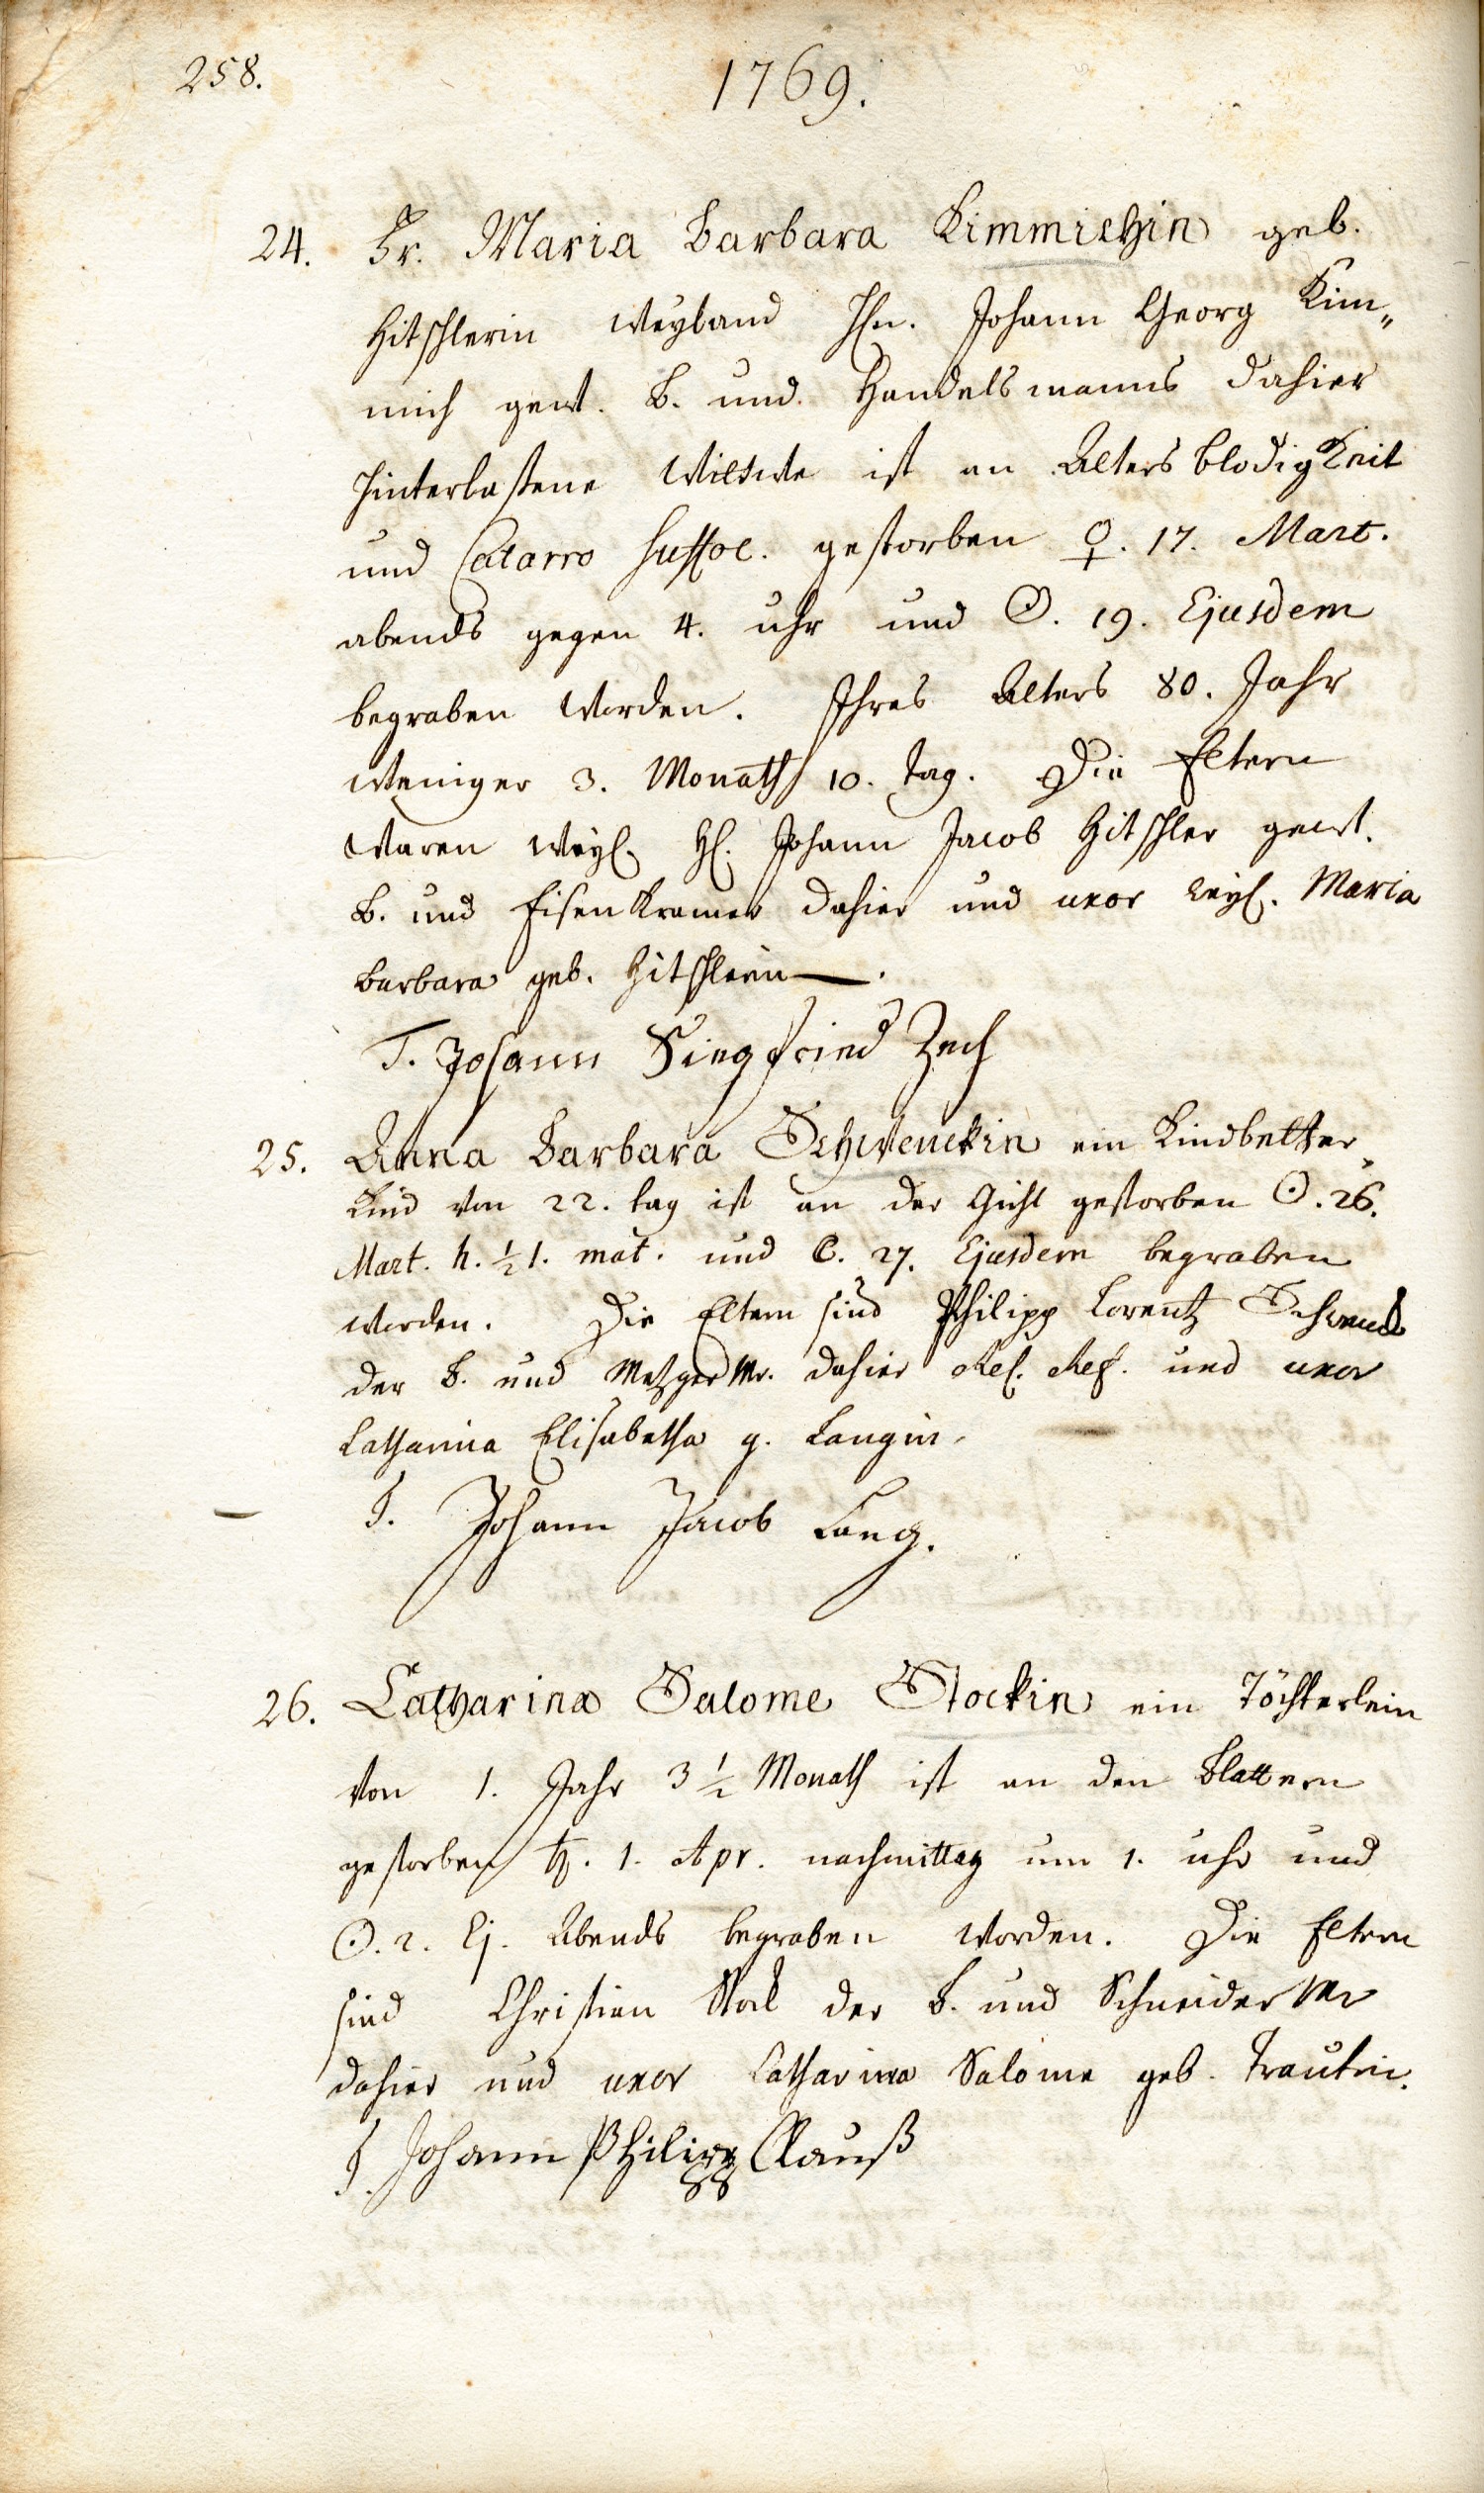 258.
1769.
24. Fr. Maria Barbara Kimmichin geb.
Hitschlerin weyland Hn. Johann Georg Kim„
mich gewt. B. und Handelsmanns dahier
hinterlaßene Wittwe ist an Alters blodigkeit
und Catarro suffoc. gestorben ♀. 17. Mart.
abends gegen 4. uhr und ☉. 19. Ejusdem
begraben worden. Ihres Alters 80. Jahr
weniger 3. Monath 10. tag. Die Eltern
waren weyl. H. Johann Jacob Hitschler gewt.
B. und Eisenkramer dahier und uxor weyl. Maria
Barbara geb. Hitschlerin —.
T. Johann Siegfried Zech
25. Anna Barbara Schwenckin ein Kindbetter
Kind von 22. tag ist an der Gicht gestorben ☉. 26.
Mart. h. ½1. mat. und ☾. 27. Ejusdem begraben
worden. Die Eltern sind Philipp Lorentz Schwenck
der B. und Metzger Mr. dahier Rel. Ref. und uxor
Catharina Elisabetha g. Langin.
T. Johann Jacob Lang.
26. Catharina Salome Stockin ein Töchterlein
von 1. Jahr 3 ½ Monath ist an den Blattern
gestorben ♄. 1. Apr. nachmittag um 1. uhr und
☉. 2. Ej. Abends begraben worden. Die Eltern
sind Christian Stock der B. und Schneider Mr
dahier und uxor Catharina Salome geb. Trautin.
T. Johann Philipp Clauß